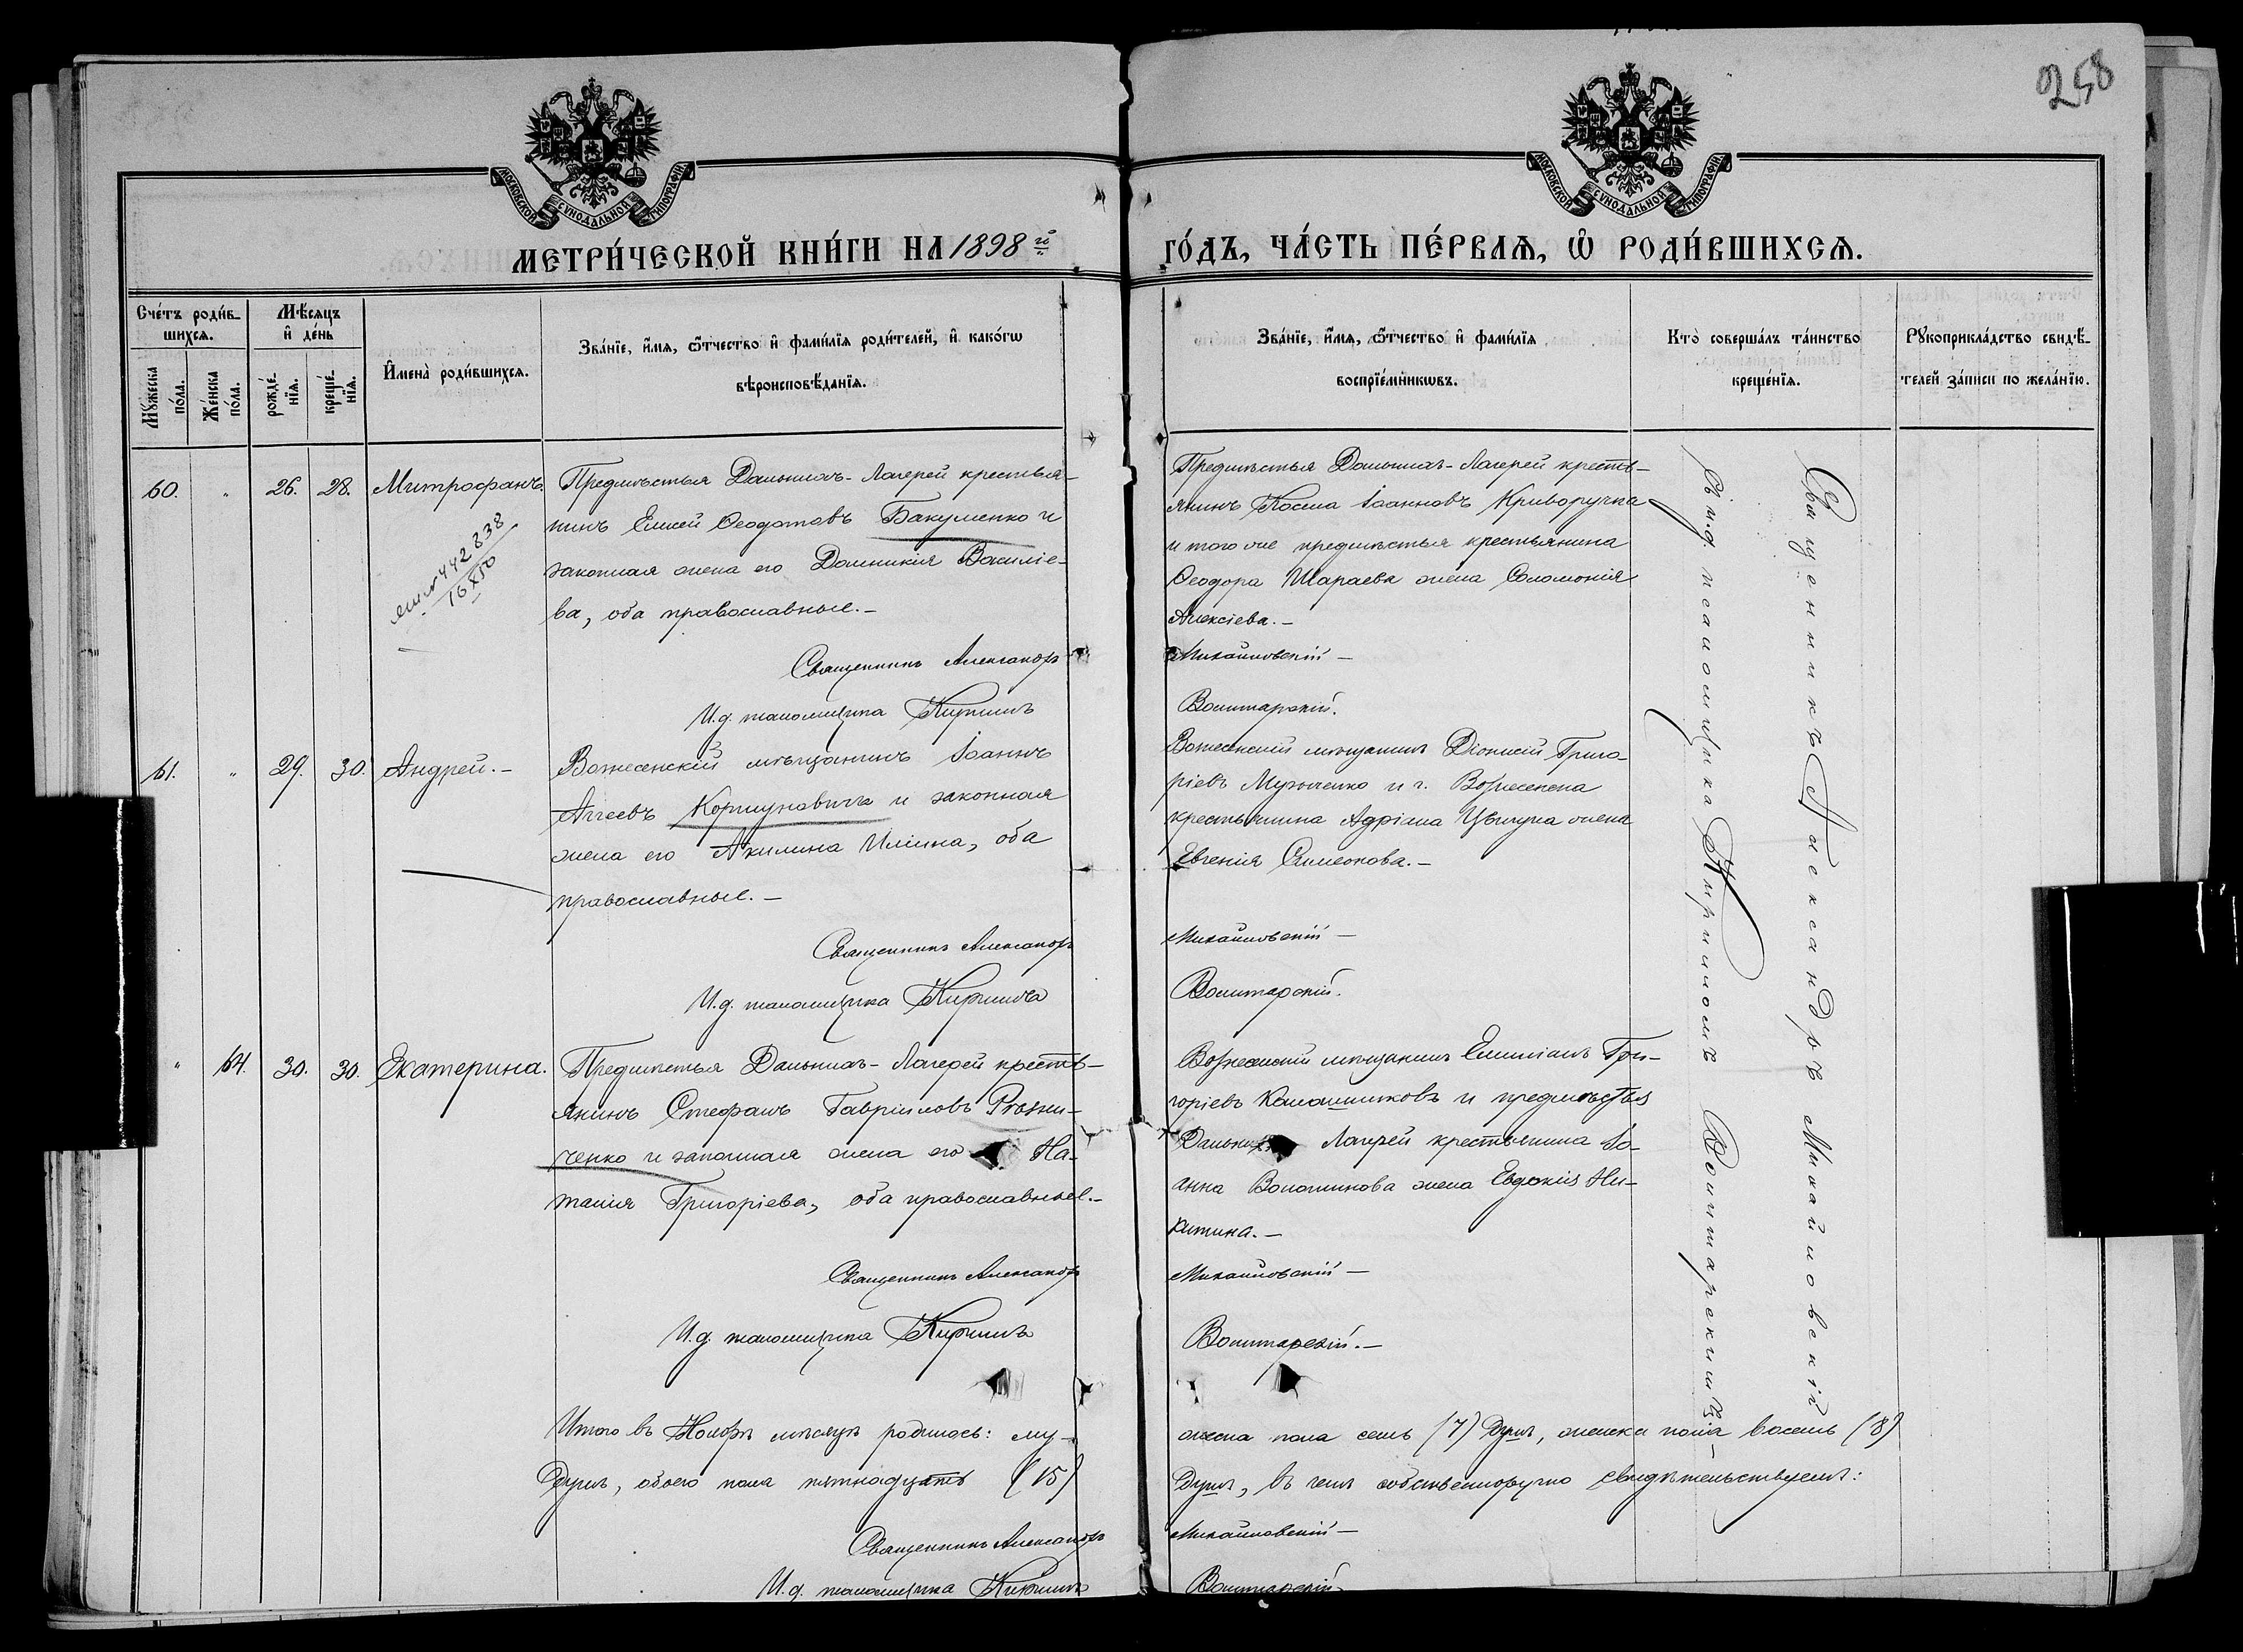 258
МОСКОВСКОЙ СѴНОДАЛЬНОЙ ТИПОГРАФІИ
МОСКОВСКОЙ СѴНОДАЛЬНОЙ ТИПОГРАФІИ
МЕТРИ́ЧЕСКОЙ КНИ́ГИ НА 1898 й
ГО́ДЪ, ЧА́СТЬ ПЕ́РВАѦ, Ѡ РОДИ́ВШИХСѦ.
Сче́тъ роди́в-
шихсѧ.
Му́жеска по́ла.
Же́нска по́ла.
Мѣ́сяцъ
и де́нь
рожде́-
нїѧ.
креще́-
нїѧ.
Имена̀ роди́вшихсѧ.
Зва́нїе, и́мѧ, ѻ́тчество и фами́лїѧ роди́телей, и како́гѡ
вѣроисповѣ́данїѧ.
Зва́нїе, и́мѧ, ѻ́тчество и фами́лїѧ
воспрїе́мникѡвъ.
Кто̀ соверша́лъ та́инство
креще́нїѧ.
Рꙋкоприкла́дство свидѣ́-
телей за́писи по жела́нїю.
60. " 26. 28. Митрофанъ.
442838
16850
Предмѣстья Дальнихъ-Лагерей крестья-
нинъ Елисей Ѳеодотовъ Бакуменко и
законная жена его Домникія Василіе-
ва, оба православные.-
Священникъ Александръ
И.д. псаломщика Кириллъ
Предмѣстья Дальнихъ-Лагерей кресть-
янинъ Косма Іоанновъ Криворучка
и того же предмѣстья крестьянина
Ѳеодора Шараева жена Соломонія
Алексіева.-
Михайловскій-
Волитарскій.
61. " 29. 30. Андрей.-
Вознесенскій мѣщанинъ Іоаннъ
Аггеевъ Коршуновичъ и законная
жена его Акилина Иліина, оба
православные.-
Священникъ Александръ
И.д. псаломщика Кириллъ
Вознесенскій мѣщанинъ Діонисій Григо-
ріевъ и г. Вознесенска
крестьянина Адріана Цвигуна жена
Евгенія Симеонова.-
Михайловскій-
Волитарскій.
" 64. 30. 30. Екатерина.
Предмѣстья Дальнихъ-Лагерей кресть-
янинъ Стефанъ Гавріиловъ
ченко и законная жена его На-
талія Григоріева, оба православные.-
Священникъ Александръ
И.д. псаломщика Кириллъ
Вознесенскій мѣщанинъ Емиліанъ Гри-
горіевъ Калашниковъ и предмѣстья
Дальнихъ Лагерей крестьянина Іо-
анна Волошинова жена Евдокія Ни-
китина.-
Михайловскій-
Волитарскій.-
Священникъ Александръ Михайловскій
съ и.д. псаломщика Кирилломъ Волитарскимъ.-
Итого въ Ноябрѣ мѣсяцѣ родилось: му-
жеска пола семь (7) душъ, женска пола восемь (8)
душъ, обоего пола пятнадцать (15)
душъ, въ чемъ собственноручно свидѣтельствуемъ:
Священникъ Александръ
Михайловскій-
И.д. псаломщика Кириллъ
Волитарскій